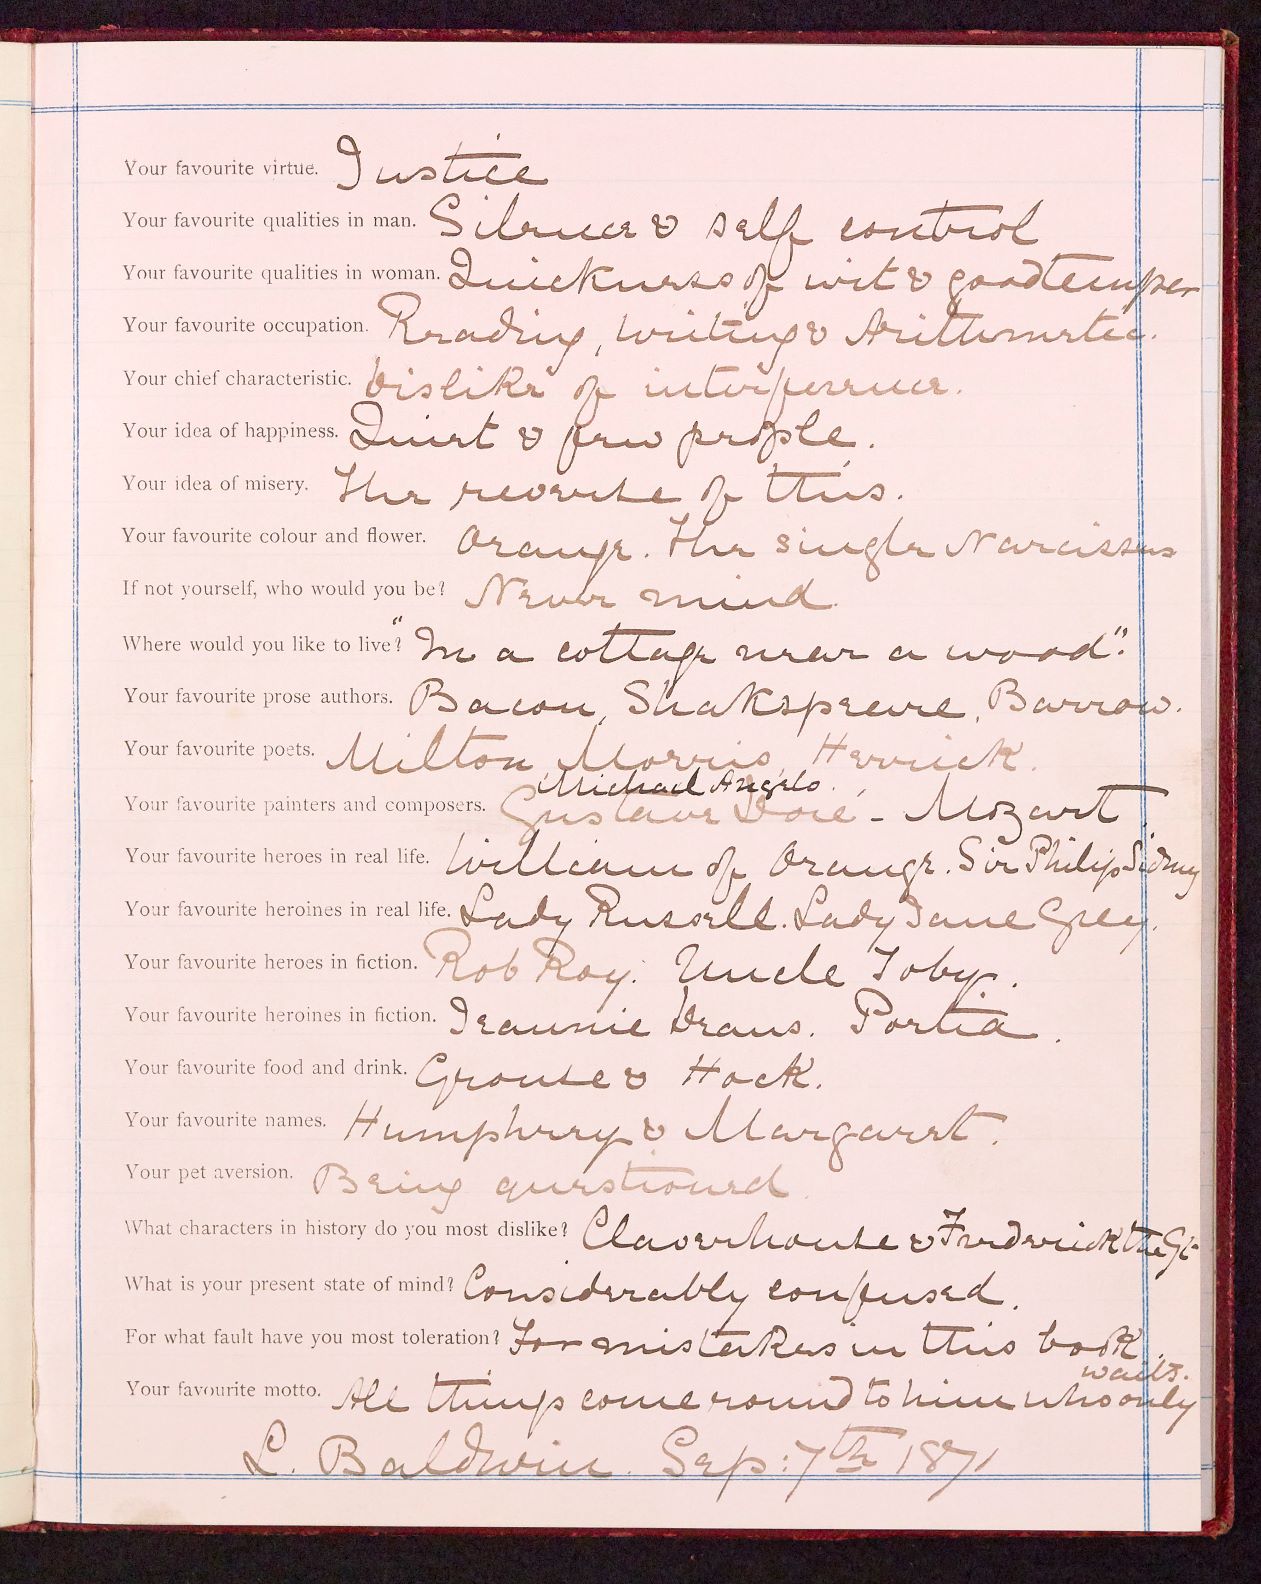 Your favourite virtue. Justice
Your favourite qualities in man. Silence & self control
Your favourite qualities in woman. Quickness of wit & good temper
Your favourite occupation. Reading, writing & Arithmetic.
Your chief characteristic. Dislike of interference.
Your idea of happiness. Quiet & few people.
Your idea of misery. The reverse of this.
Your favourite colour and flower. Orange. The single Narcissus
If not yourself, who would you be? Never mind.
Where would you like to live? "In a cottage near a wood".
Your favourite prose authors. Bacon, Shakspeare, Barrow.
Your favourite poets. Milton, Morris, Herrick.
Michael Angelo.
Your favourite painters and composers. Gustave Doré - Mozart
Your favourite heroes in real life. William of Orange. Sir Philip Sidney
Your favourite heroines in real life. Lady Russell. Lady Jane Grey.
Your favourite heroes in fiction. Rob Roy. Uncle Toby.
Your favourite heroines in fiction. Jeannie Deans. Portia.
Your favourite food and drink. Grouse & Hock.
Your favourite names. Humphrey & Margaret.
Your pet aversion. Being questioned.
What characters in history do you most dislike? Claverhouse & Frederick the Gt
What is your present state of mind? Considerably confused.
For what fault have you most toleration? For mistakes in this book.
Your favourite motto. All things come round to him who only
waits.
L. Baldwin. Sep: 7th 1871